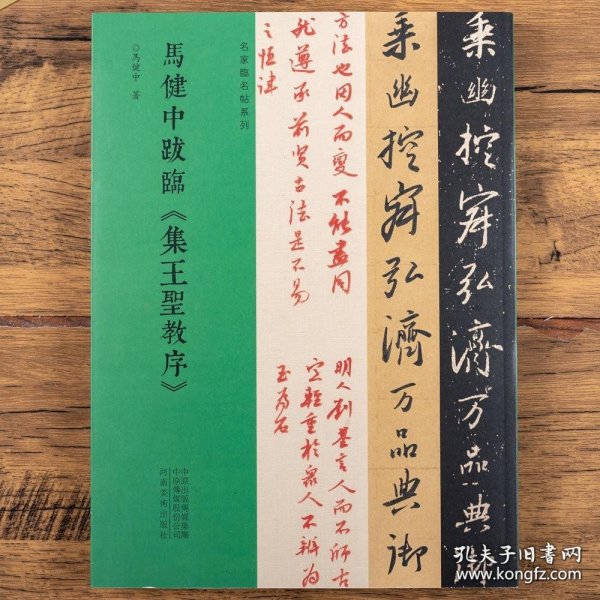 乘幽控寂弘濟万品典御
乘幽控寂弘濟万品典御
方法也因人而變不能盡同
然遵承前賢古法是不易
之恒律
明人劉基言人而不師古
定輕重於衆人不辨為
玉為石
名家臨名帖系列
馬健中跋臨《集王聖教序》
◎馬健中 著
中原出版傳媒集團
中原傳媒股份公司
河南美術出版社
孔夫子旧书网
www.kongfz.com